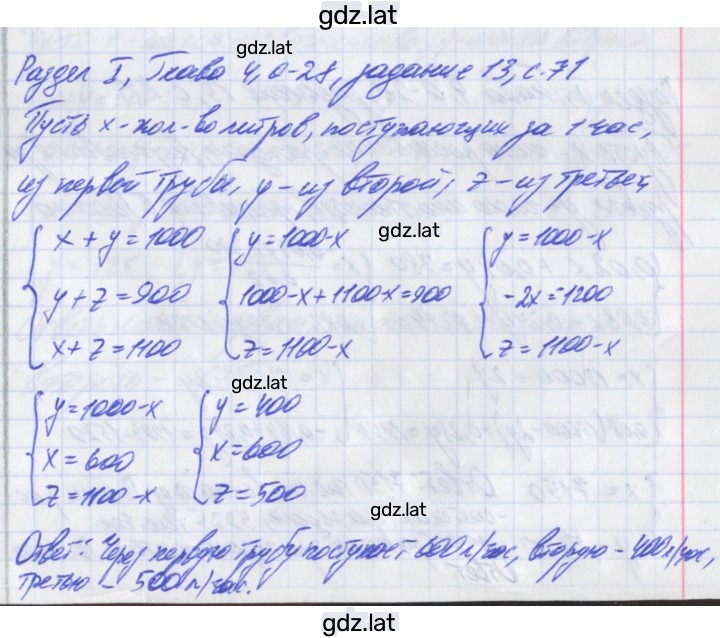 gdz.lat
gdz.lat
Раздел I, Глава 4, О-28, задание 13, с.71
Пусть x - кол-во литров, поступающих за 1 час,
из первой трубы, y - из второй, z - из третьей
gdz.lat
x + y = 1000
y + z = 900
x + z = 1100
y = 1000-x
1000-x+1100-x=900
z = 1100-x
y = 1000-x
-2x = 1200
z = 1100-x
gdz.lat
y = 1000-x
x = 600
z = 1100-x
y = 400
x = 600
z = 500
gdz.lat
Ответ: Через первого трубу поступает 600 л/час, вторую - 400 л/час,
третью - 500 л/час.
gdz.lat